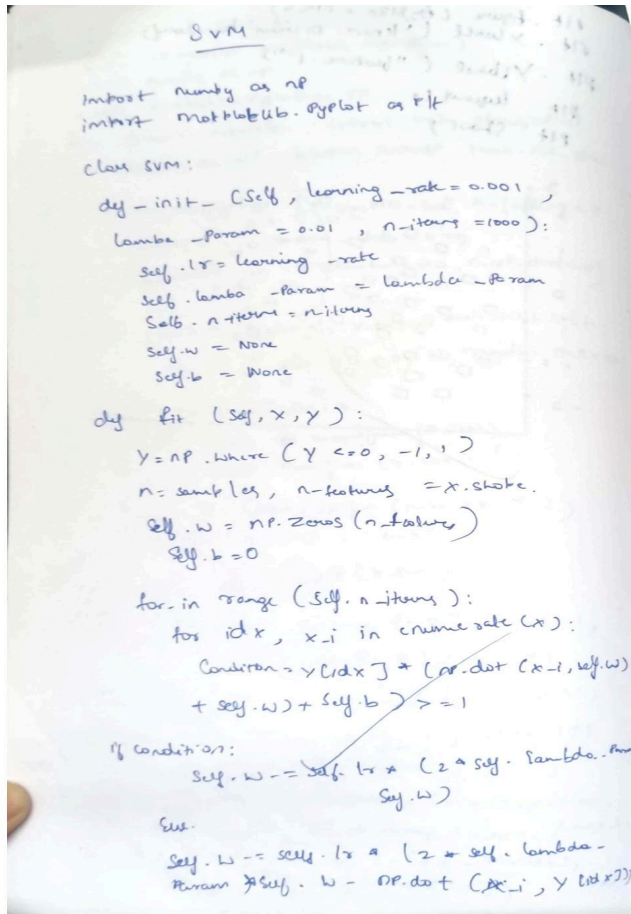 SVM
import numby as np
import Motplotlib.pyplot as plt
class SVM:
def _init_ (self, learning_rate = 0.001,
lamba_Param = 0.01, n-iterns = 1000):
self.lr = learning_rate
self.lamba_Param = lambda_Param
Self.n-iterns = n iterns
self.w = None
self.b = None
def fit (self, X, Y):
Y = np.where (Y <=0, -1, 1)
n= samples, n-features = X.shape.
self.w = np.zeros (n_features)
self.b = 0
for-in range (self.n_iterns):
for idx, x_i in enumerate (x):
Condition = Y[idx] * (np.dot (x-i, self.w)
+ self.w) + self.b) >= 1
if condition:
self.w -= self.lr * (2 * self.lambda.
self.w)
Else.
self.w -= self.lr * (2 * self.lambda-
Param * self.w - np.dot (x-i, Y[idx]))